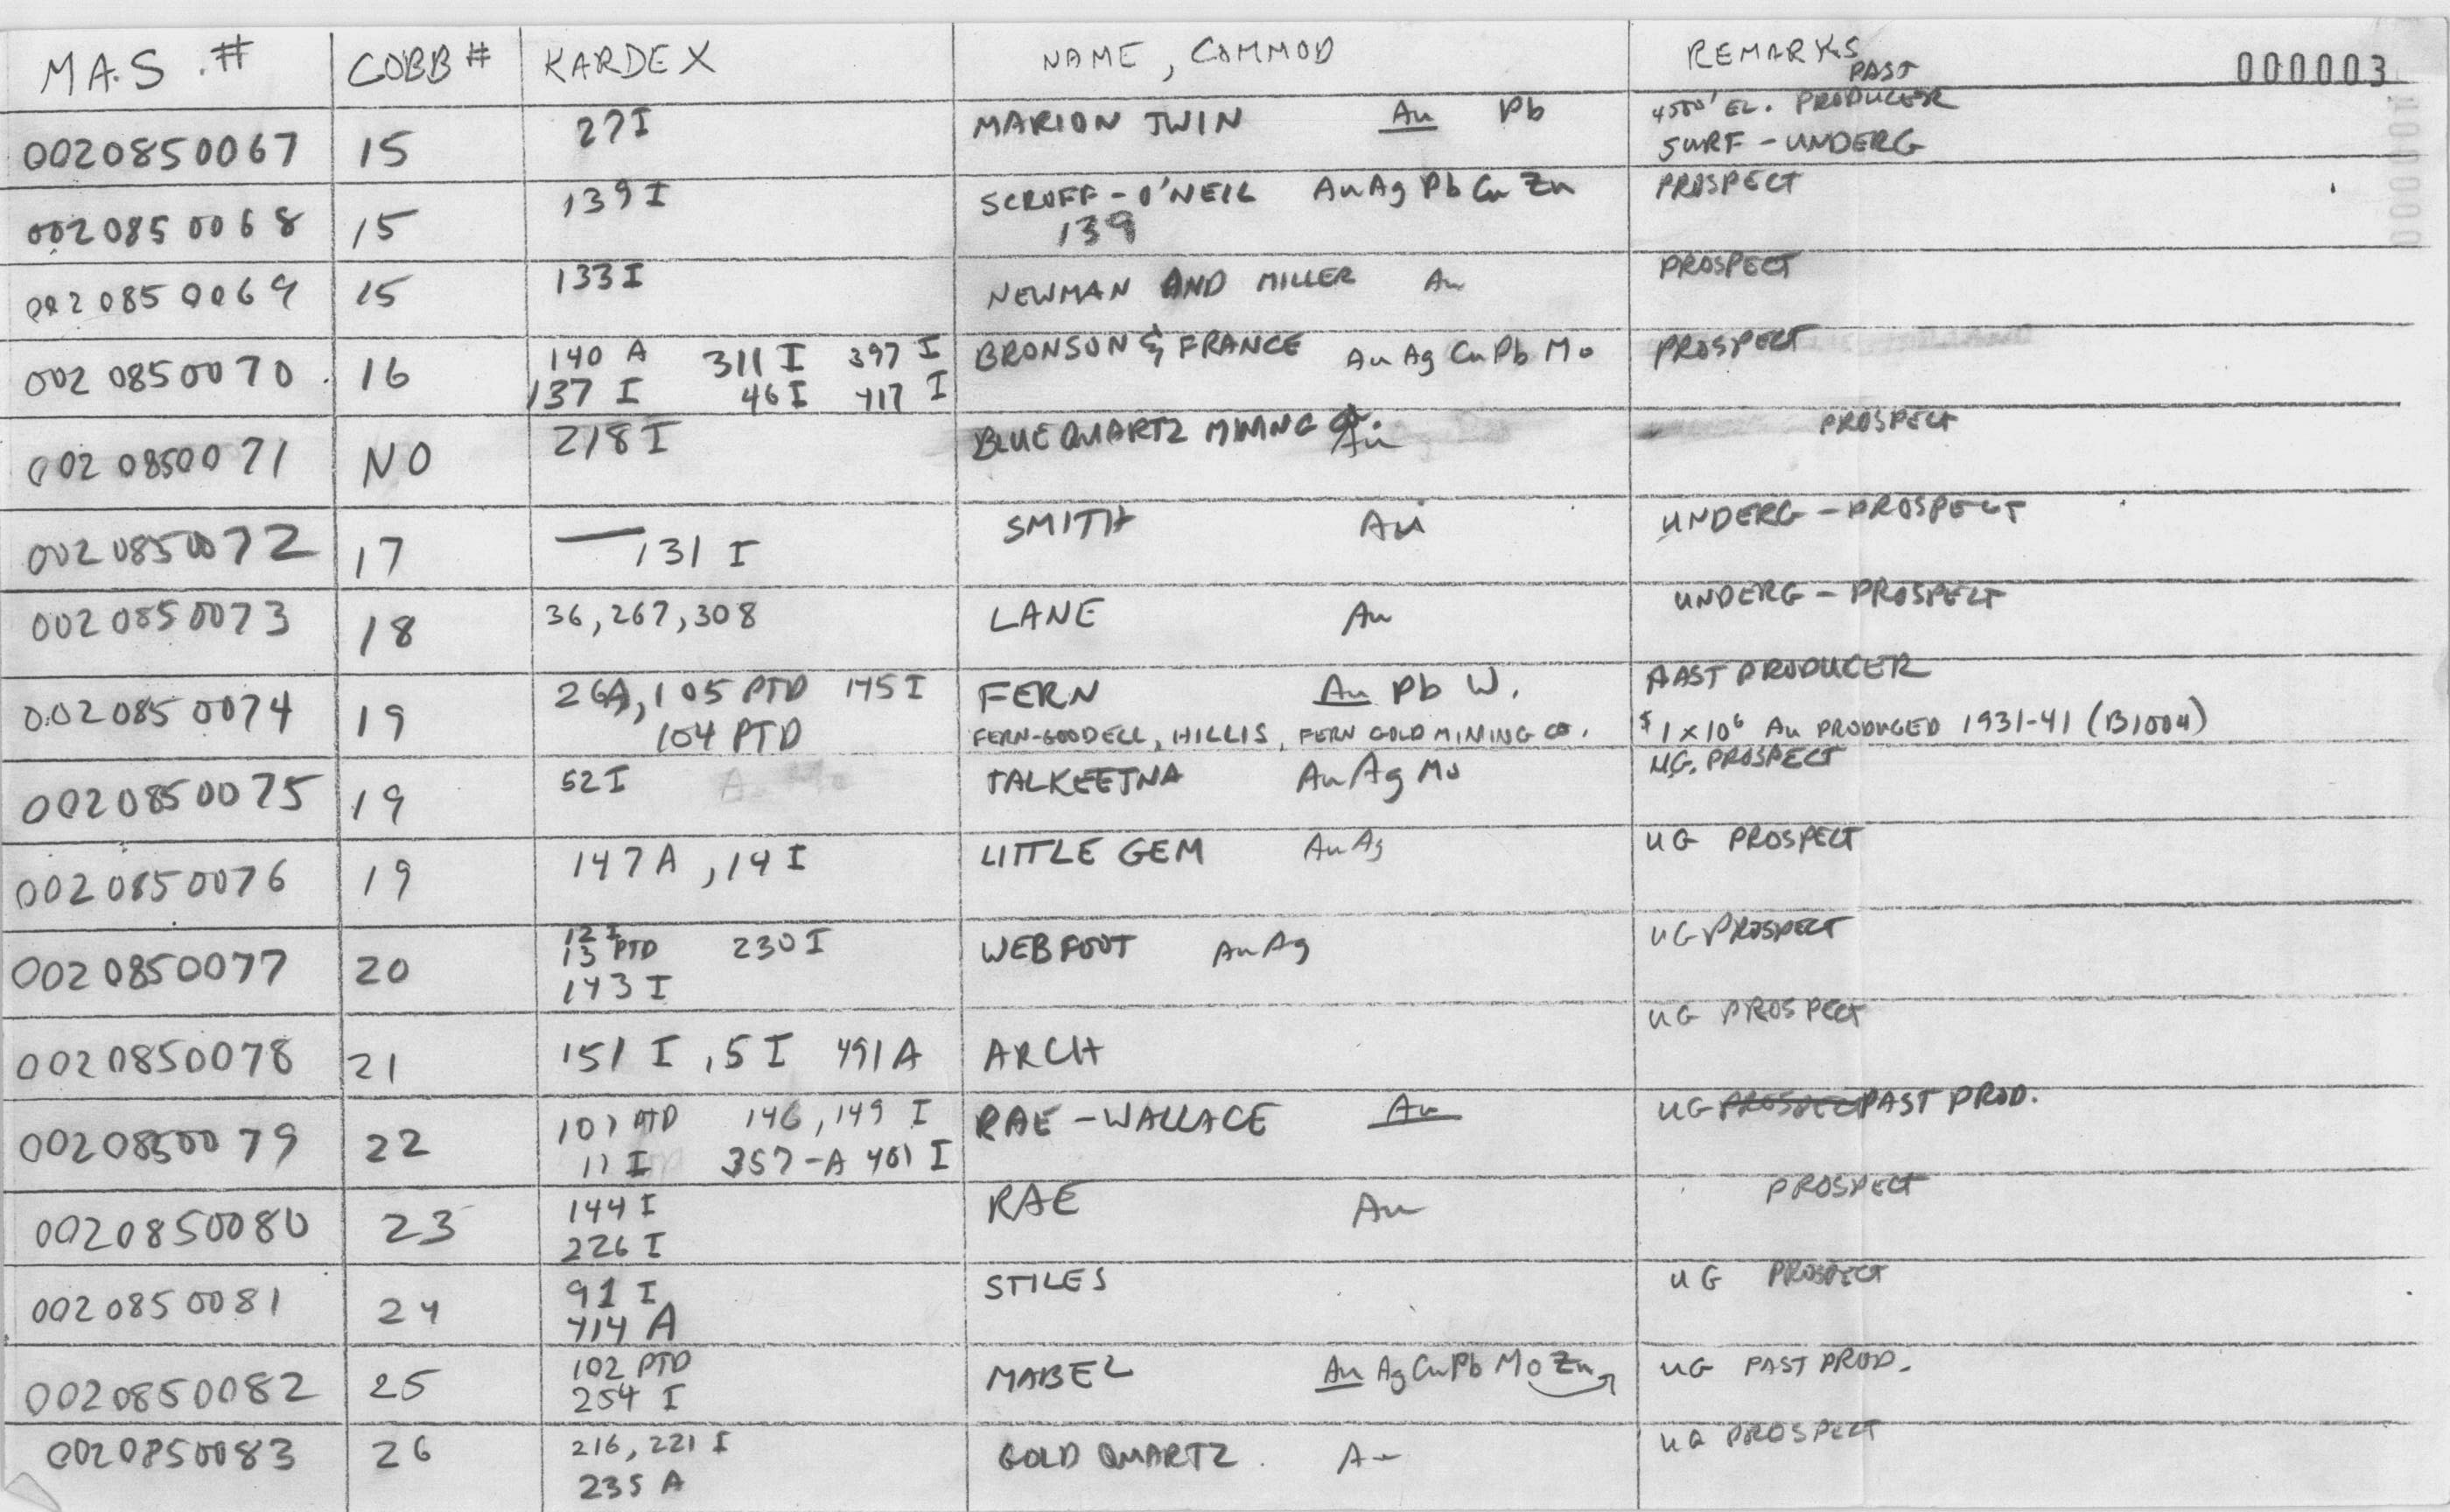 M.A.S. # COBB # KARDEX NAME, COMMOD REMARKS 000003
PAST
0020850067 15 27I MARION TWIN Au Pb 4500' EL. PRODUCER
SURF - UNDERG
0020850068 15 139I SCROFF - O'NEIL Au Ag Pb Cu Zn PROSPECT
139
0020850069 15 133I NEWMAN AND MILLER Au PROSPECT
0020850070 16 140 A 311 I 397 I BRONSON & FRANCE Au Ag Cu Pb Mo PROSPECT
137 I 46 I 417 I
0020850071 NO 218 I BLUE QUARTZ MINING CO. Au PROSPECT
0020850072 17 — 131 I SMITH Au UNDERG - PROSPECT
0020850073 18 36, 267, 308 LANE Au UNDERG - PROSPECT
0020850074 19 26A, 105 PTD 145 I FERN Au Pb W. PAST PRODUCER
104 PTD FERN-GOODELL, HILLIS, FERN GOLD MINING CO. $1 x 10⁶ Au PRODUCED 1931-41 (B1004)
0020850075 19 52 I TALKEETNA Au Ag Mo UG. PROSPECT
0020850076 19 147 A, 14 I LITTLE GEM Au Ag UG PROSPECT
0020850077 20 12 I WEBFOOT Au Ag UG PROSPECT
13 PTD 230 I
143 I
0020850078 21 151 I, 5 I 491 A ARCH UG PROSPECT
0020850079 22 101 PTD 146, 149 I RAE - WALLACE Au UG PROSPECT PAST PROD.
11 I 357-A 401 I
0020850080 23 144 I RAE Au PROSPECT
226 I
0020850081 24 91 I STILES UG PROSPECT
414 A
0020850082 25 102 PTD MABEL Au Ag Cu Pb Mo Zn UG PAST PROD.
254 I
0020850083 26 216, 221 I GOLD QUARTZ Au UG PROSPECT
235 A